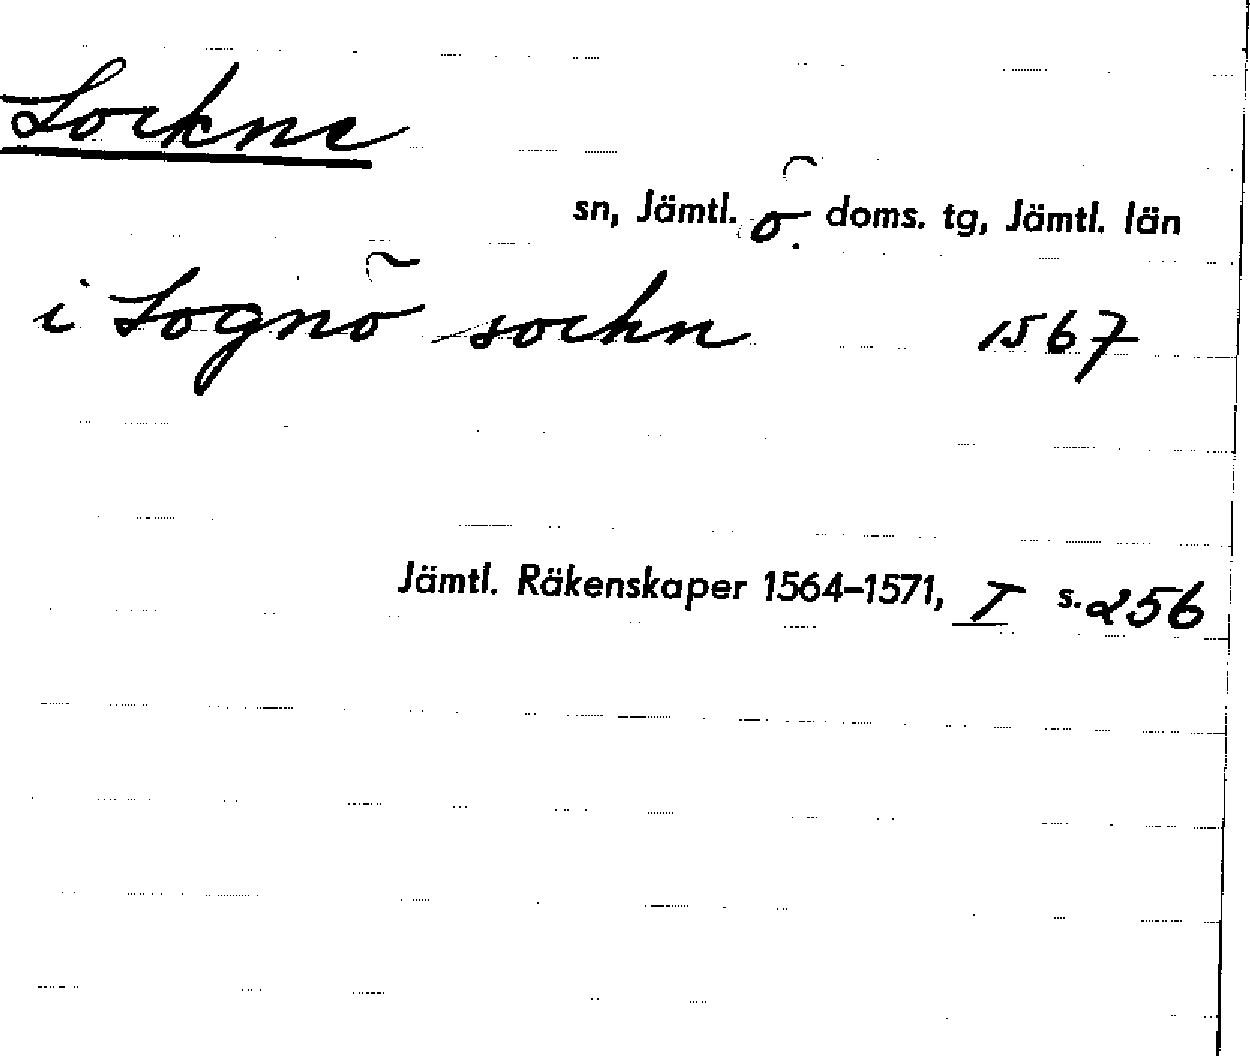 Lockne
sn, Jämtl. ö. doms. tg, Jämtl. län
i Lognö sockn 1567
Jämtl. Räkenskaper 1564–1571, I s. 256